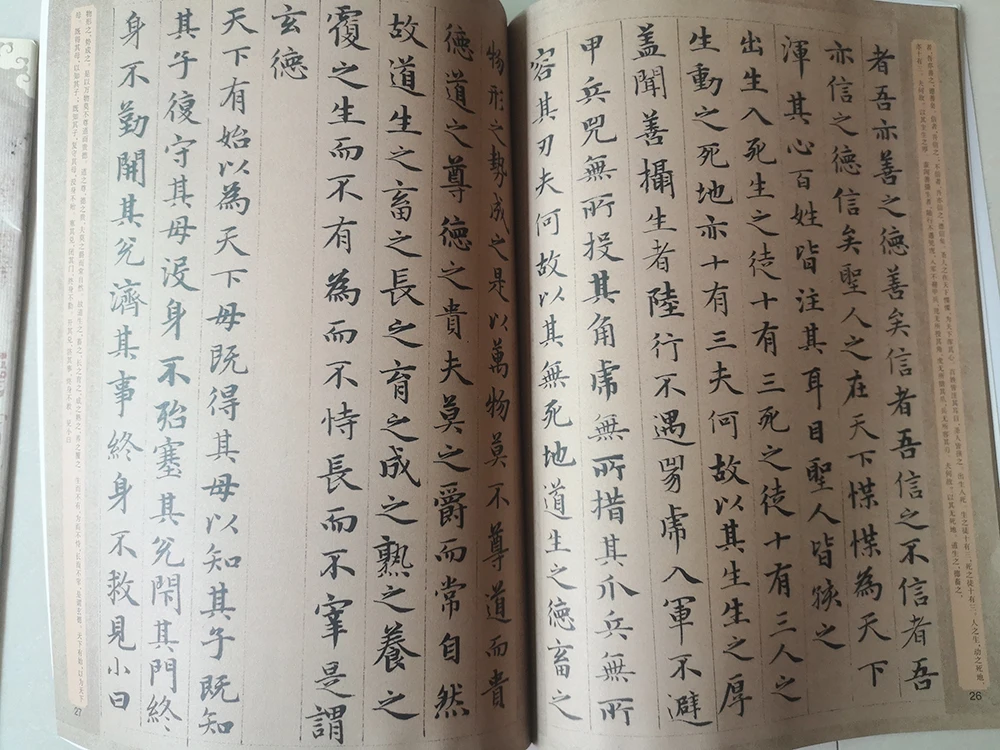 者吾亦善之德善矣信者吾信之不信者吾
亦信之德信矣聖人之在天下惵惵為天下
渾其心百姓皆注其耳目聖人皆孩之
出生入死生之徒十有三死之徒十有三人之
生動之死地亦十有三夫何故以其生生之厚
盖聞善攝生者陸行不遇兕虎入軍不避
甲兵兕無所投其角虎無所措其爪兵無所
容其刃夫何故以其無死地道生之德畜之
26
物形之勢成之是以萬物莫不尊道而貴
德道之尊德之貴夫莫之爵而常自然
故道生之畜之長之育之成之熟之養之
覆之生而不有為而不恃長而不宰是謂
玄德
天下有始以為天下母既得其母以知其子既知
其子復守其母没身不殆塞其兌閇其門終
身不勤開其兌濟其事終身不救見小曰
27